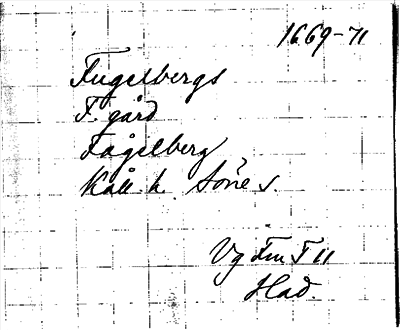 1669-71
Fugelbergs
F. gård
Fågelberg
Kåll. h. Sörje s.
Vg Fm F 11
Had.